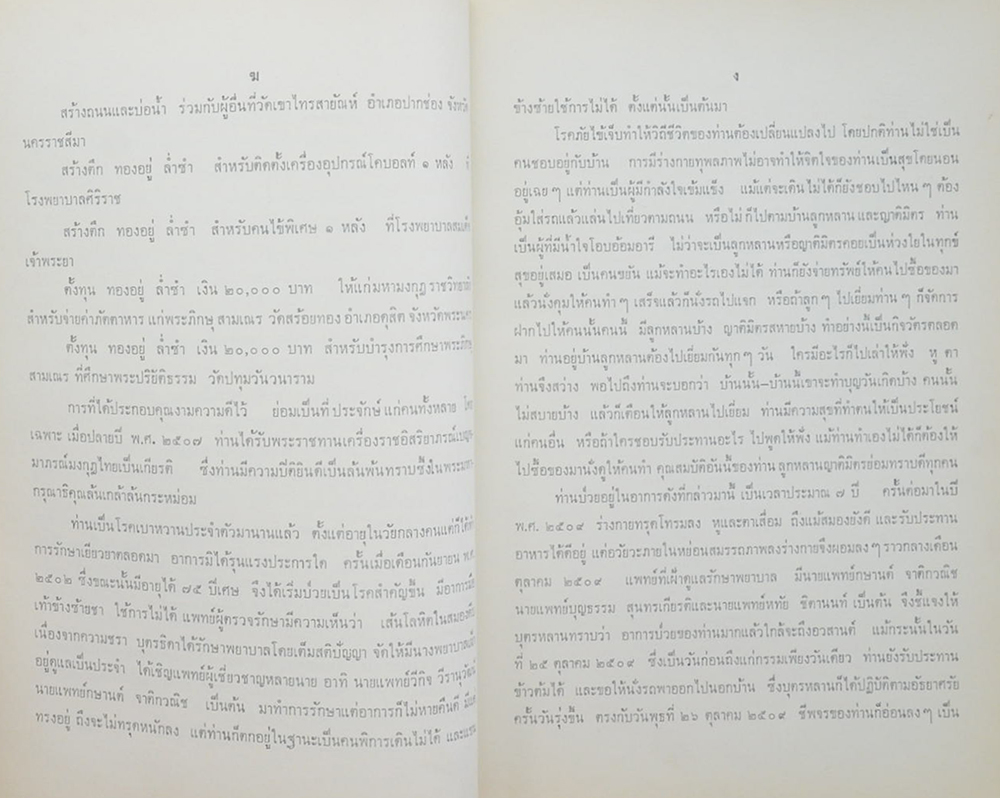 ฆ
สร้างถนนและบ่อน้ำ ร่วมกับผู้อื่นที่วัดเขาไทรสายัณห์ อำเภอปากช่อง จังหวัด
นครราชสีมา
สร้างตึก ทองอยู่ ล่ำซำ สำหรับติดตั้งเครื่องอุปกรณ์โคบอลท์ ๑ หลัง
โรงพยาบาลศิริราช
สร้างตึก ทองอยู่ ล่ำซำ สำหรับคนไข้พิเศษ ๑ หลัง ที่โรงพยาบาลสมเด็จ
เจ้าพระยา
ตั้งทุน ทองอยู่ ล่ำซำ เงิน ๒๐,๐๐๐ บาท ให้แก่มหามงกุฎราชวิทยาลัย
สำหรับจ่ายค่าภัตตาหาร แก่พระภิกษุ สามเณร วัดสร้อยทอง อำเภอดุสิต จังหวัดพระนคร
ตั้งทุน ทองอยู่ ล่ำซำ เงิน ๒๐,๐๐๐ บาท สำหรับบำรุงการศึกษาพระภิกษุ
สามเณร ที่ศึกษาพระปริยัติธรรม วัดปทุมวันวนาราม
การที่ได้ประกอบคุณงามความดีไว้ ย่อมเป็นที่ประจักษ์แก่คนทั้งหลาย โดย
เฉพาะ เมื่อปลายปี พ.ศ. ๒๕๐๗ ท่านได้รับพระราชทานเครื่องราชอิสริยาภรณ์เบญจ
มาภรณ์มงกุฎไทยเป็นเกียรติ ซึ่งท่านมีความปีติยินดีเป็นล้นพ้นทราบซึ้งในพระมหา
กรุณาธิคุณล้นเกล้าล้นกระหม่อม
ท่านเป็นโรคเบาหวานประจำตัวมานานแล้ว ตั้งแต่อายุในวัยกลางคนแต่ก็ได้ทำ
การรักษาเยียวยาตลอดมา อาการมิได้รุนแรงประการใด ครั้นเมื่อเดือนกันยายน พ.ศ.
๒๕๐๒ ซึ่งขณะนั้นมีอายุได้ ๗๕ ปีเศษ จึงได้เริ่มป่วยเป็นโรคสำคัญขึ้น มีอาการมือ
เท้าข้างซ้ายชา ใช้การไม่ได้ แพทย์ผู้ตรวจรักษามีความเห็นว่า เส้นโลหิตในสมองตีบ
เนื่องจากความชรา บุตรธิดาได้รักษาพยาบาลโดยเต็มสติปัญญา จัดให้มีนางพยาบาลเฝ้า
อยู่ดูแลเป็นประจำ ได้เชิญแพทย์ผู้เชี่ยวชาญหลายนาย อาทิ นายแพทย์วีกิจ วีรานุวัตติ์
นายแพทย์กษานต์ จาติกวณิช เป็นต้น มาทำการรักษาแต่อาการก็ไม่หายคืนดี มีแต่
ทรงอยู่ ถึงจะไม่ทรุดหนักลง แต่ท่านก็ตกอยู่ในฐานะเป็นคนพิการเดินไม่ได้ และแขน
ง
ข้างซ้ายใช้การไม่ได้ ตั้งแต่นั้นเป็นต้นมา
โรคภัยไข้เจ็บทำให้วิถีชีวิตของท่านต้องเปลี่ยนแปลงไป โดยปกติท่านไม่ใช่เป็น
คนชอบอยู่กับบ้าน การมีร่างกายทุพลภาพไม่อาจทำให้จิตใจของท่านเป็นสุขโดยนอน
อยู่เฉยๆ แต่ท่านเป็นผู้มีกำลังใจเข้มแข็ง แม้แต่จะเดินไม่ได้ก็ยังชอบไปไหนๆ ต้อง
อุ้มใส่รถแล้วแล่นไปเที่ยวตามถนน หรือไม่ก็ไปตามบ้านลูกหลานและญาติมิตร ท่าน
เป็นผู้ที่มีน้ำใจโอบอ้อมอารี ไม่ว่าจะเป็นลูกหลานหรือญาติมิตรคอยเป็นห่วงใยในทุกข์
สุขอยู่เสมอ เป็นคนขยัน แม้จะทำอะไรเองไม่ได้ ท่านก็ยังจ่ายทรัพย์ให้คนไปซื้อของมา
แล้วนั่งคุมให้คนทำๆ เสร็จแล้วก็นั่งรถไปแจก หรือถ้าลูกๆ ไปเยี่ยมท่านๆ ก็จัดการ
ฝากไปให้คนนั้นคนนี้ มีลูกหลานบ้าง ญาติมิตรสหายบ้าง ทำอย่างนี้เป็นกิจวัตรตลอด
มา ท่านอยู่บ้านลูกหลานต้องไปเยี่ยมกันทุกๆ วัน ใครมีอะไรก็ไปเล่าให้ฟัง หู ตา
ท่านจึงสว่าง พอไปถึงท่านจะบอกว่า บ้านนั้น–บ้านนี้เขาจะทำบุญวันเกิดบ้าง คนนั้น
ไม่สบายบ้าง แล้วก็เตือนให้ลูกหลานไปเยี่ยม ท่านมีความสุขที่ทำตนให้เป็นประโยชน์
แก่คนอื่น หรือถ้าใครชอบรับประทานอะไร ไปพูดให้ฟัง แม้ท่านทำเองไม่ได้ก็ต้องให้
ไปซื้อของมานั่งดูให้คนทำ คุณสมบัติอันนี้ของท่าน ลูกหลานญาติมิตรย่อมทราบดีทุกคน
ท่านป่วยอยู่ในอาการดังที่กล่าวมานี้ เป็นเวลาประมาณ ๗ ปี ครั้นต่อมาในปี
พ.ศ. ๒๕๐๙ ร่างกายทรุดโทรมลง หูและตาเสื่อม ถึงแม้สมองยังดี และรับประทาน
อาหารได้ดีอยู่ แต่อวัยวะภายในหย่อนสมรรถภาพลงร่างกายจึงผอมลงๆ ราวกลางเดือน
ตุลาคม ๒๕๐๙ แพทย์ที่เฝ้าดูแลรักษาพยาบาล มีนายแพทย์กษานต์ จาติกวณิช
นายแพทย์บุญธรรม สุนทรเกียรติและนายแพทย์หทัย ชิตานนท์ เป็นต้น จึงชี้แจงให้
บุตรหลานทราบว่า อาการป่วยของท่านมากแล้วใกล้จะถึงอวสานต์ แม้กระนั้นในวัน
ที่ ๒๕ ตุลาคม ๒๕๐๙ ซึ่งเป็นวันก่อนถึงแก่กรรมเพียงวันเดียว ท่านยังรับประทาน
ข้าวต้มได้ และขอให้นั่งรถพาออกไปนอกบ้าน ซึ่งบุตรหลานก็ได้ปฏิบัติตามอัธยาศรัย
ครั้นวันรุ่งขึ้น ตรงกับวันพุธที่ ๒๖ ตุลาคม ๒๕๐๙ ชีพจรของท่านก็อ่อนลงๆ เป็น